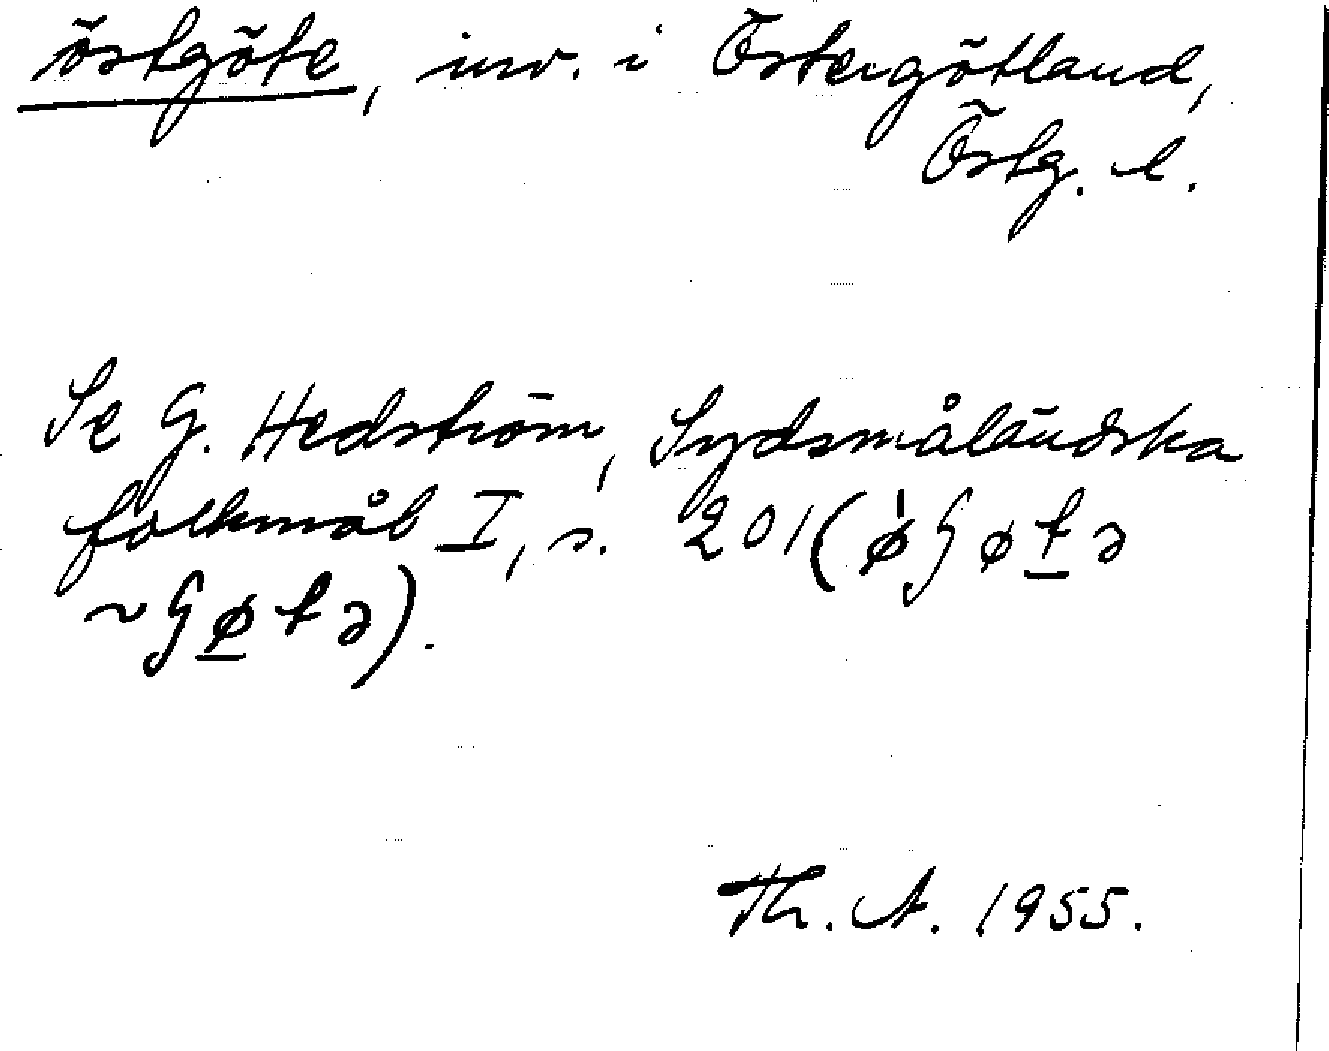 östgöte, inv. i Östergötland,
Östg. l.
Se G. Hedström, Sydsmåländska
folkmål I, s. 201 (
~
).
Th. A. 1955.